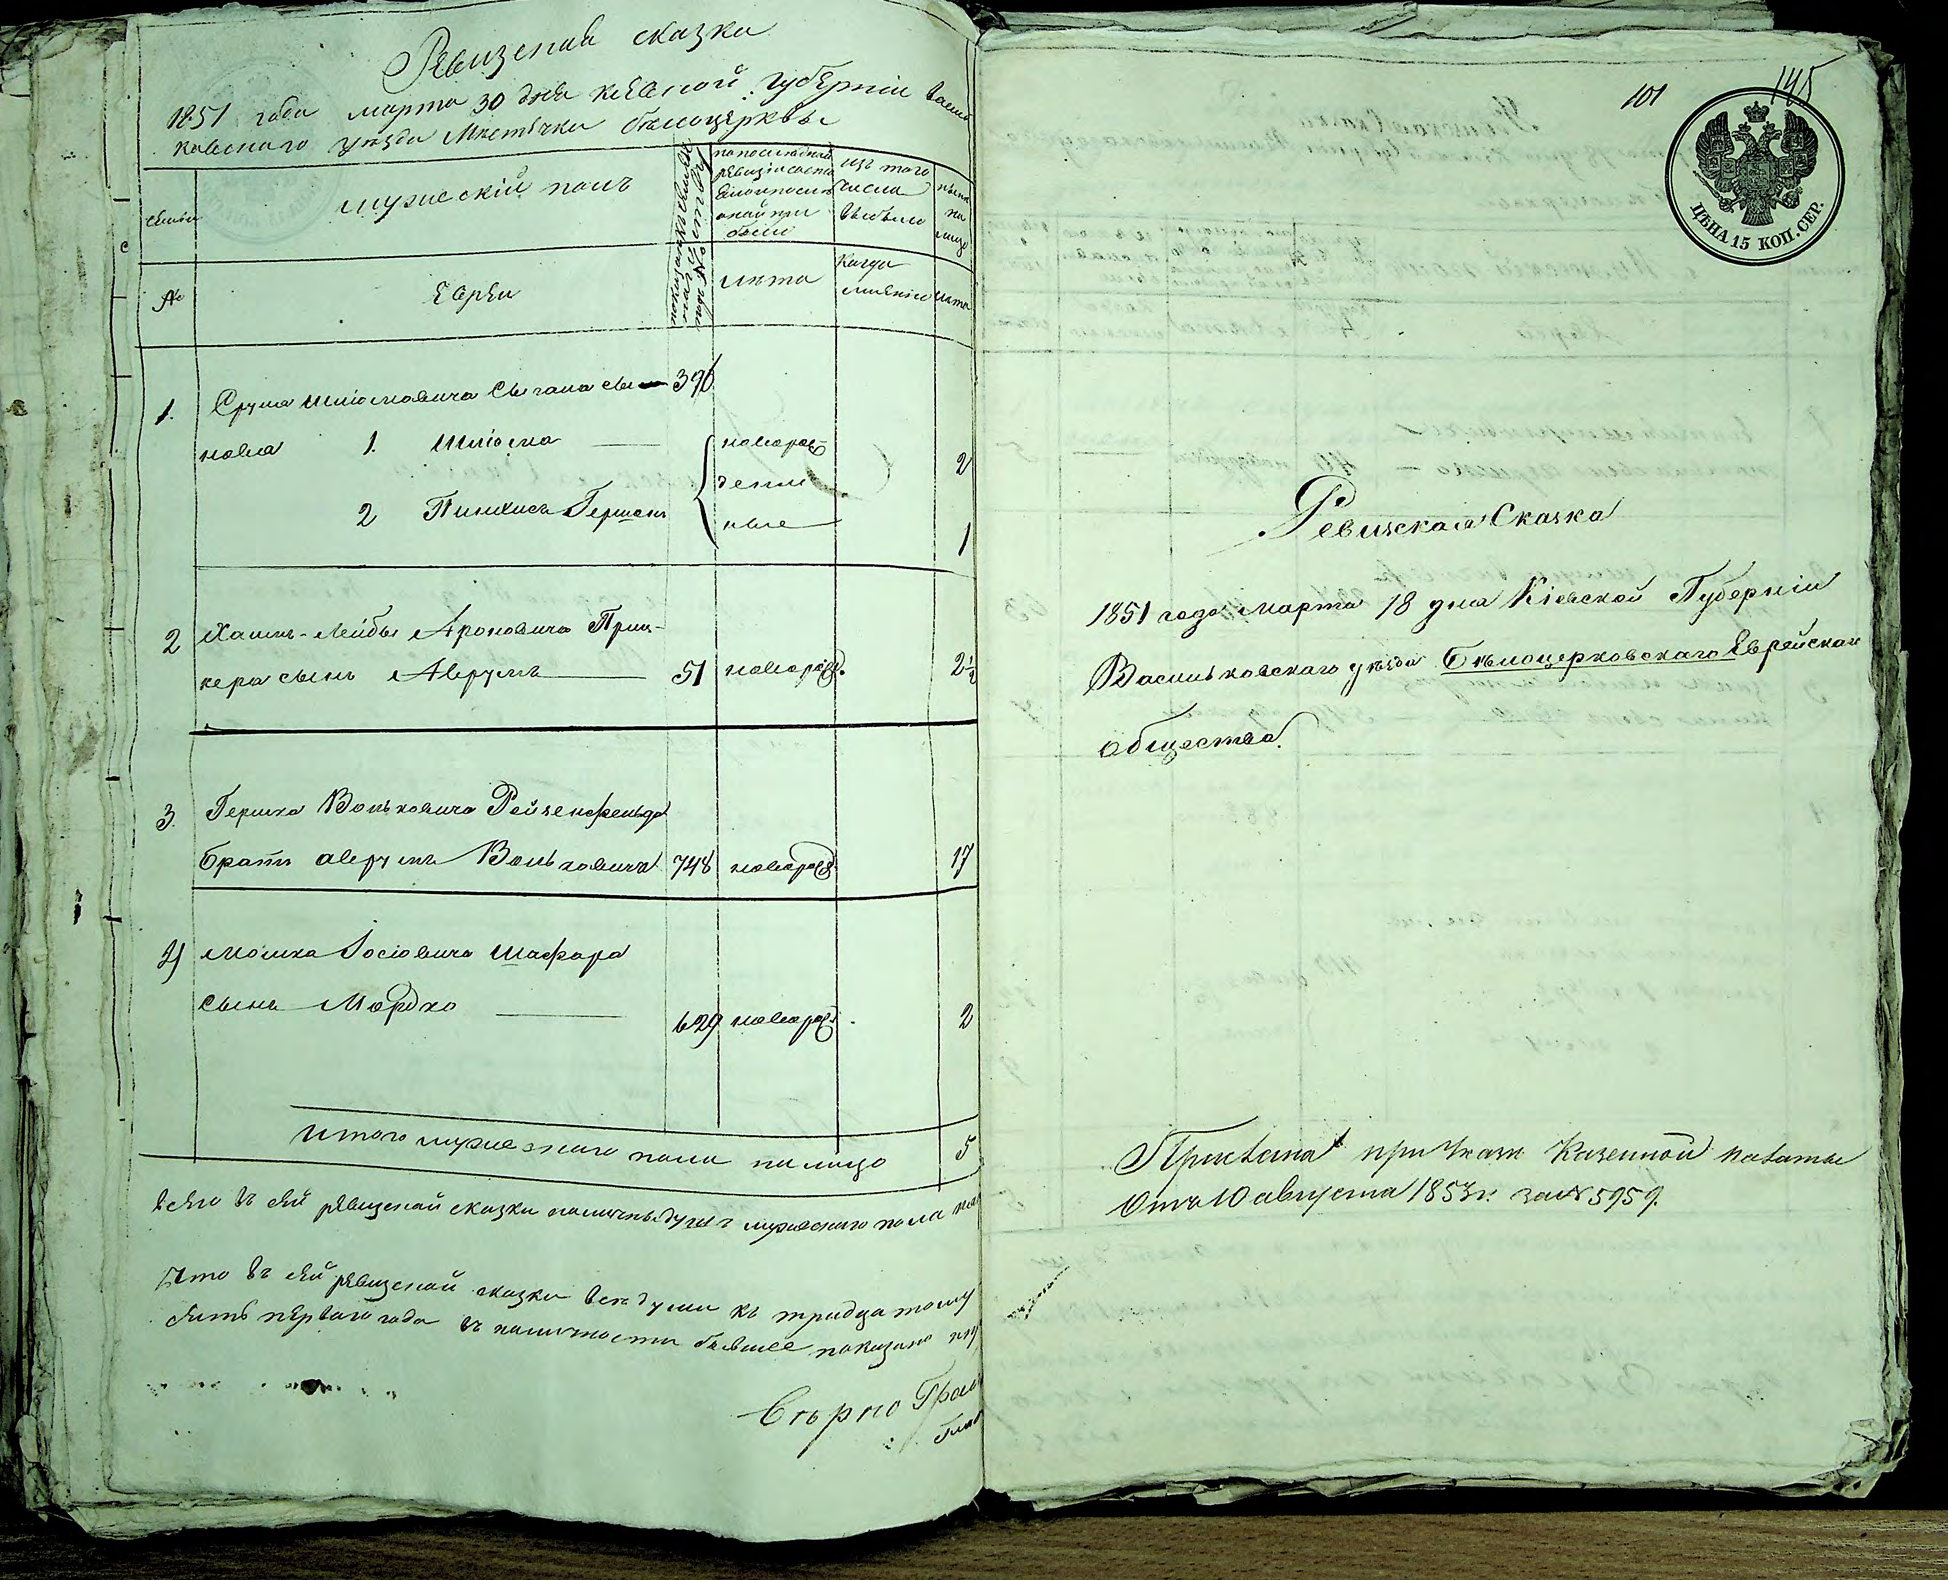 Ревизская сказка
1851 года марта 30 дня Киевской губернии Василь
ковскаго уезда Местечка белоцерквы
семьи
мужескій полъ
по последней
ревизіи состо
яло и после
оной при
было
изъ того
числа
выбыло
ныне
на
лицо
№
Евреи
лета
когда
именно
лета
1. Сруля Шліомовича Сыгала сы — 390
новья 1. Шліома — новорож 2
денны
2 Пинхисъ Гершенъ ные 1
2 Хаимъ-Лейбы Ароновича Приц-
кера сынъ Аврумъ — 51 новорожд. 2½
3. Гершка Вольковича Рейзенфельда
братъ аврумъ Вольковичъ 748 новорожд. 17
4 Мошка Іосіовича Шафара
сынъ Мордко — 629 новорожд. 2
Итого мужескаго пола на лицо 5
всего въ сей ревизской сказки наличныхъ душъ мужескаго пола
Что въ сей ревизской сказки все души къ тридцатому
бить перваго года въ наличности бывшее показано
Верно
101
145
ЦѢНА 15 КОП. СЕР.
Ревизская Сказка
1851 года Марта 18 дня Кіевской Губерніи
Васильковскаго уѣзда Бѣлоцерковскаго Еврейскаго
общества.
Прислана при Указе Казенной палаты
Отъ 10 августа 1853 г. за № 5959.